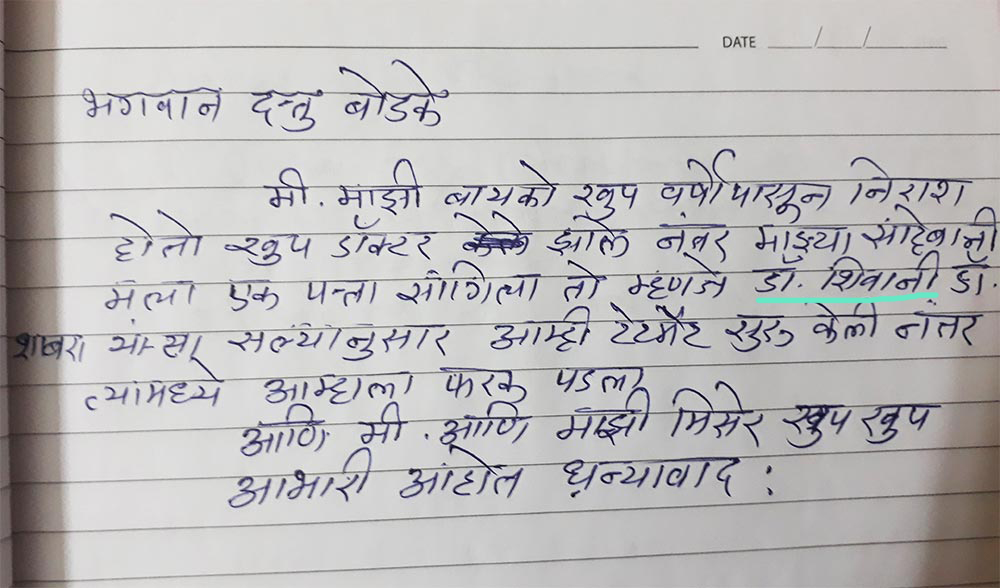 DATE / /
भगवान दत्तु बोडके
मी. माझी बायको खुप वर्षोपासून निराश
होतो खुप डॉक्टर केले झाले नंतर माझ्या साहेबानी
मला एक पत्ता सांगितला तो म्हणजे डॉ. शिवानी डॉ.
सल्यानुसार आम्ही टेटमेंट सुरु केली नंतर
त्यामध्ये आम्हाला फरक पडला
आणि मी. आणि माझी मिसेर खुप खुप
आभारी आहोत धन्यावाद :